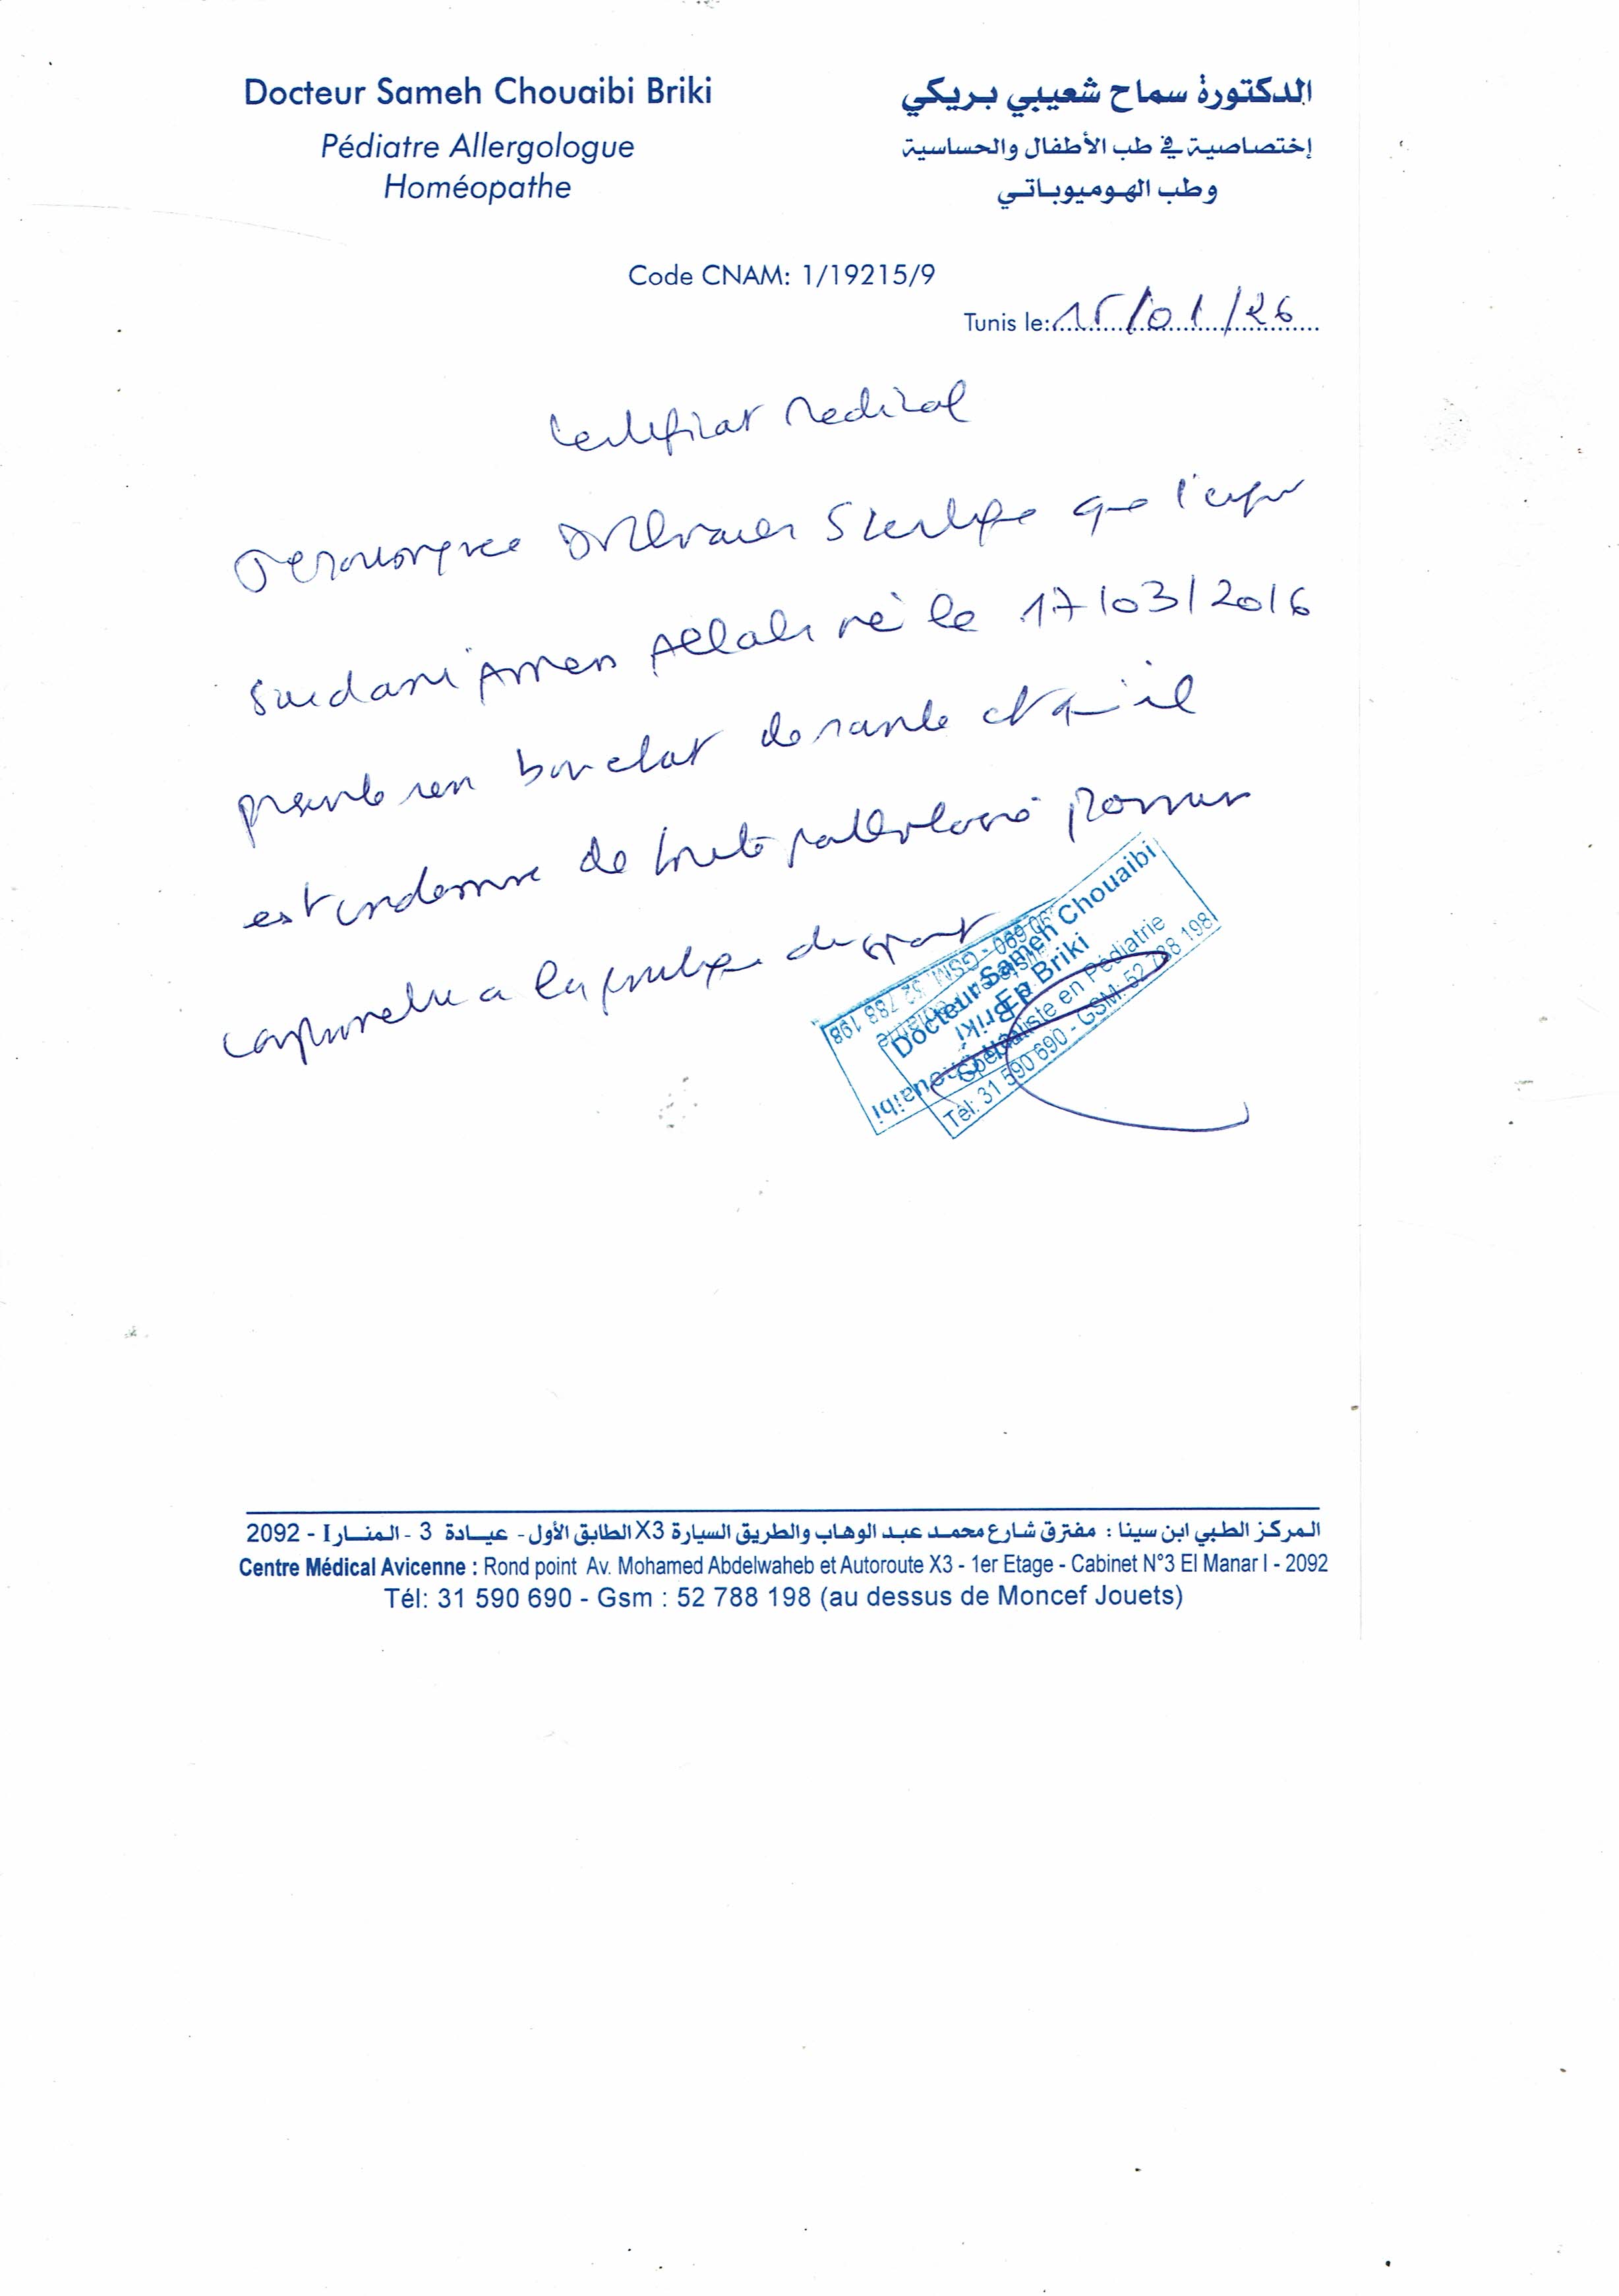 Docteur Sameh Chouaibi Briki
Pédiatre Allergologue
Homéopathe
الدكتورة سماح شعيبي بريكي
إختصاصية في طب الأطفال والحساسية
وطب الهوميوباتي
Code CNAM: 1/19215/9
Tunis le: 15/01/26
Certificat Medical
que l'enfant
Saidani Amen Allah né le 17/03/2016
presente un bon etat de sante et qu'il
est indemne de toute pathologie pouvant
a la pratique du sport
Docteur Sameh Chouaibi
Ep Briki
Spécialiste en Pédiatrie
Tél: 31 590 690 - GSM: 52 788 198
المركز الطبي ابن سينا : مفترق شارع محمد عبد الوهاب والطريق السيارة X3 الطابق الأول - عيادة 3 - المنار I - 2092
Centre Médical Avicenne : Rond point Av. Mohamed Abdelwaheb et Autoroute X3 - 1er Etage - Cabinet N°3 El Manar I - 2092
Tél: 31 590 690 - Gsm : 52 788 198 (au dessus de Moncef Jouets)